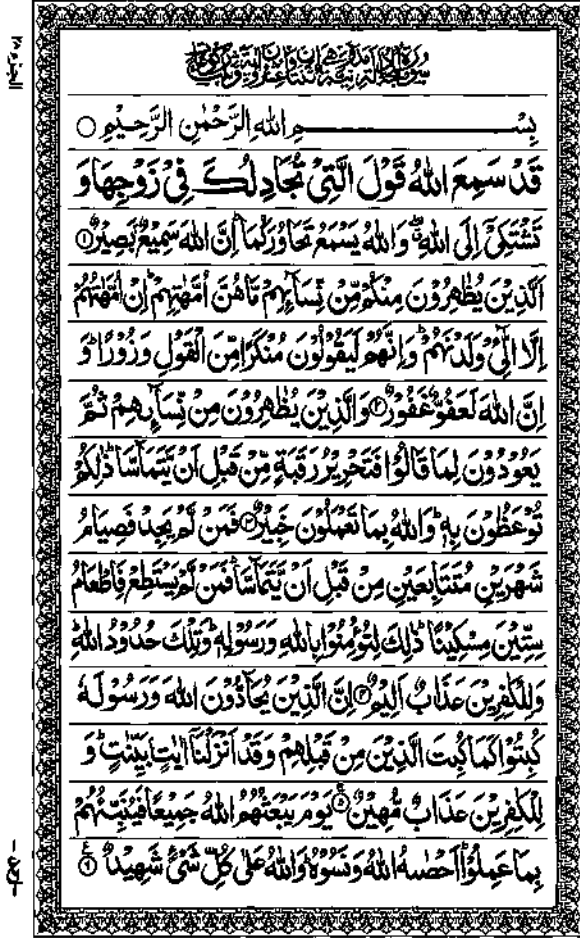 سورة المجادلة مدنية وهى اثنتان وعشرون اية وثلث ركوعات
بِسْمِ اللهِ الرَّحْمٰنِ الرَّحِيْمِ ○
قَدْ سَمِعَ اللهُ قَوْلَ الَّتِيْ تُجَادِلُكَ فِيْ زَوْجِهَا وَ
تَشْتَكِيْٓ اِلَى اللهِ ۖ وَاللهُ يَسْمَعُ تَحَاوُرَكُمَا ؕ اِنَّ اللهَ سَمِيْعٌۢ بَصِيْرٌ ۝۱
اَلَّذِيْنَ يُظٰهِرُوْنَ مِنْكُمْ مِّنْ نِّسَآئِهِمْ مَّا هُنَّ اُمَّهٰتِهِمْ ؕ اِنْ اُمَّهٰتُهُمْ
اِلَّا الّٰٓئِيْ وَلَدْنَهُمْ ؕ وَاِنَّهُمْ لَيَقُوْلُوْنَ مُنْكَرًا مِّنَ الْقَوْلِ وَزُوْرًا ؕ وَ
اِنَّ اللهَ لَعَفُوٌّ غَفُوْرٌ ۝۲ وَالَّذِيْنَ يُظٰهِرُوْنَ مِنْ نِّسَآئِهِمْ ثُمَّ
يَعُوْدُوْنَ لِمَا قَالُوْا فَتَحْرِيْرُ رَقَبَةٍ مِّنْ قَبْلِ اَنْ يَّتَمَآسَّا ؕ ذٰلِكُمْ
تُوْعَظُوْنَ بِهٖ ؕ وَاللهُ بِمَا تَعْمَلُوْنَ خَبِيْرٌ ۝۳ فَمَنْ لَّمْ يَجِدْ فَصِيَامُ
شَهْرَيْنِ مُتَتَابِعَيْنِ مِنْ قَبْلِ اَنْ يَّتَمَآسَّا ۚ فَمَنْ لَّمْ يَسْتَطِعْ فَاِطْعَامُ
سِتِّيْنَ مِسْكِيْنًا ؕ ذٰلِكَ لِتُؤْمِنُوْا بِاللهِ وَرَسُوْلِهٖ ؕ وَتِلْكَ حُدُوْدُ اللهِ ؕ
وَلِلْكٰفِرِيْنَ عَذَابٌ اَلِيْمٌ ۝۴ اِنَّ الَّذِيْنَ يُحَآدُّوْنَ اللهَ وَرَسُوْلَهٗ
كُبِتُوْا كَمَا كُبِتَ الَّذِيْنَ مِنْ قَبْلِهِمْ وَقَدْ اَنْزَلْنَآ اٰيٰتٍۭ بَيِّنٰتٍ ؕ وَ
لِلْكٰفِرِيْنَ عَذَابٌ مُّهِيْنٌ ۝۵ يَوْمَ يَبْعَثُهُمُ اللهُ جَمِيْعًا فَيُنَبِّئُهُمْ
بِمَا عَمِلُوْا ؕ اَحْصٰىهُ اللهُ وَنَسُوْهُ ؕ وَاللهُ عَلٰى كُلِّ شَيْءٍ شَهِيْدٌ ۝۶